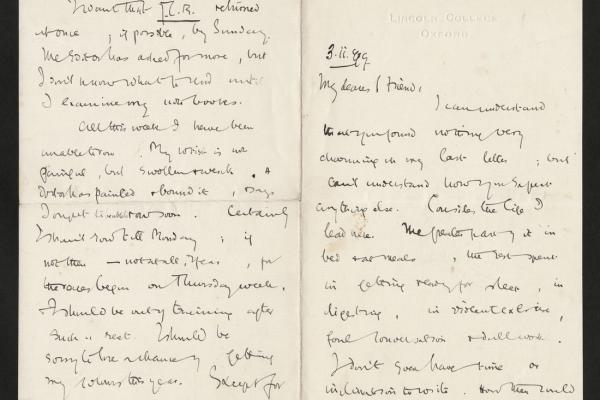 I want that returned
at once, if possible, by Sunday.
The Editor has asked for more, but
I don't know what to send until
I examine my note books.
All this week I have been
unable to row. My wrist is not
painful, but swollen & weak. A
Doctor has painted & bound it, & says
I ought to be able to row soon. Certainly
I shan't row till Monday; if
not then — not at all, I fear, for
the races begin on Thursday week.
I should be out of training after
such a rest. I should be
sorry to lose a chance of getting
my colours this year. Except for
LINCOLN COLLEGE
OXFORD.
3.ii.99
My dearest Friend,
I can understand
that you found nothing very
charming in my last letter; but
can't understand how you expect
anything else. Consider the life I
lead now. The greater part of it in
bed & at meals, & the rest spent
in getting ready for sleep, in
digesting, in violent exercise,
foul conversation & dull work.
I don't even have time or
inclination to write. How then could